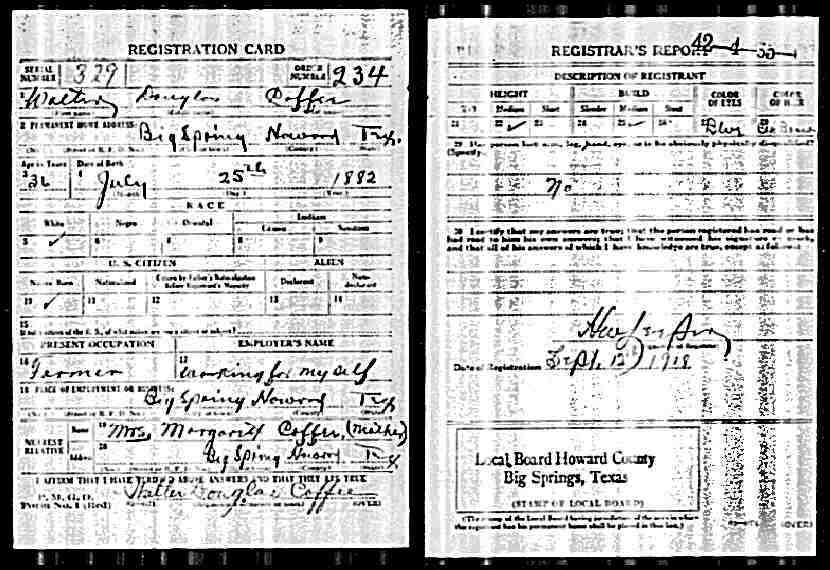 REGISTRATION CARD
SERIAL NUMBER 329 ORDER NUMBER 234
1 Walter Douglas Coffee
2 PERMANENT HOME ADDRESS:
Big Spring Howard Tex.
Age in Years Date of Birth
36 July 25th 1882
RACE
White Negro Oriental Indian
Citizen Noncitizen
5 ✓ 6 7 8 9
U. S. CITIZEN ALIEN
Native Born Naturalized Citizen by Father's Naturalization Before Registrant's Majority Declarant Non-declarant
10 ✓ 11 12 13 14
15
If not a citizen of the U. S., of what nation are you a citizen or subject?
PRESENT OCCUPATION EMPLOYER'S NAME
16 Farmer 17 Working for my self
18 PLACE OF EMPLOYMENT OR BUSINESS:
Big Spring Howard Tex
NEAREST RELATIVE Name 19 Mrs. Margaret Coffee, (Mother)
Address 20 Big Spring Howard Tex
I AFFIRM THAT I HAVE VERIFIED ABOVE ANSWERS AND THAT THEY ARE TRUE
P. M. G. O.
Form No. 1 (Red) Walter Douglas Coffee (OVER)
REGISTRAR'S REPORT 42-4-55
DESCRIPTION OF REGISTRANT
HEIGHT BUILD COLOR OF EYES COLOR OF HAIR
Tall Medium Short Slender Medium Stout
21 22 ✓ 23 24 25 ✓ 26 27 Blue 28
29 Has person lost arm, leg, hand, eye, or is he obviously physically disqualified? (Specify)
No
30 I certify that my answers are true; that the person registered has read or has
had read to him his own answers; that I have witnessed his signature or mark,
and that all of his answers of which I have knowledge are true, except as follows:
Date of Registration Sept. 12 1918
Local Board Howard County
Big Springs, Texas
(STAMP OF LOCAL BOARD)
(The stamp of the Local Board having jurisdiction of the area in which
the registrant has his permanent home shall be placed in this box.) (OVER)